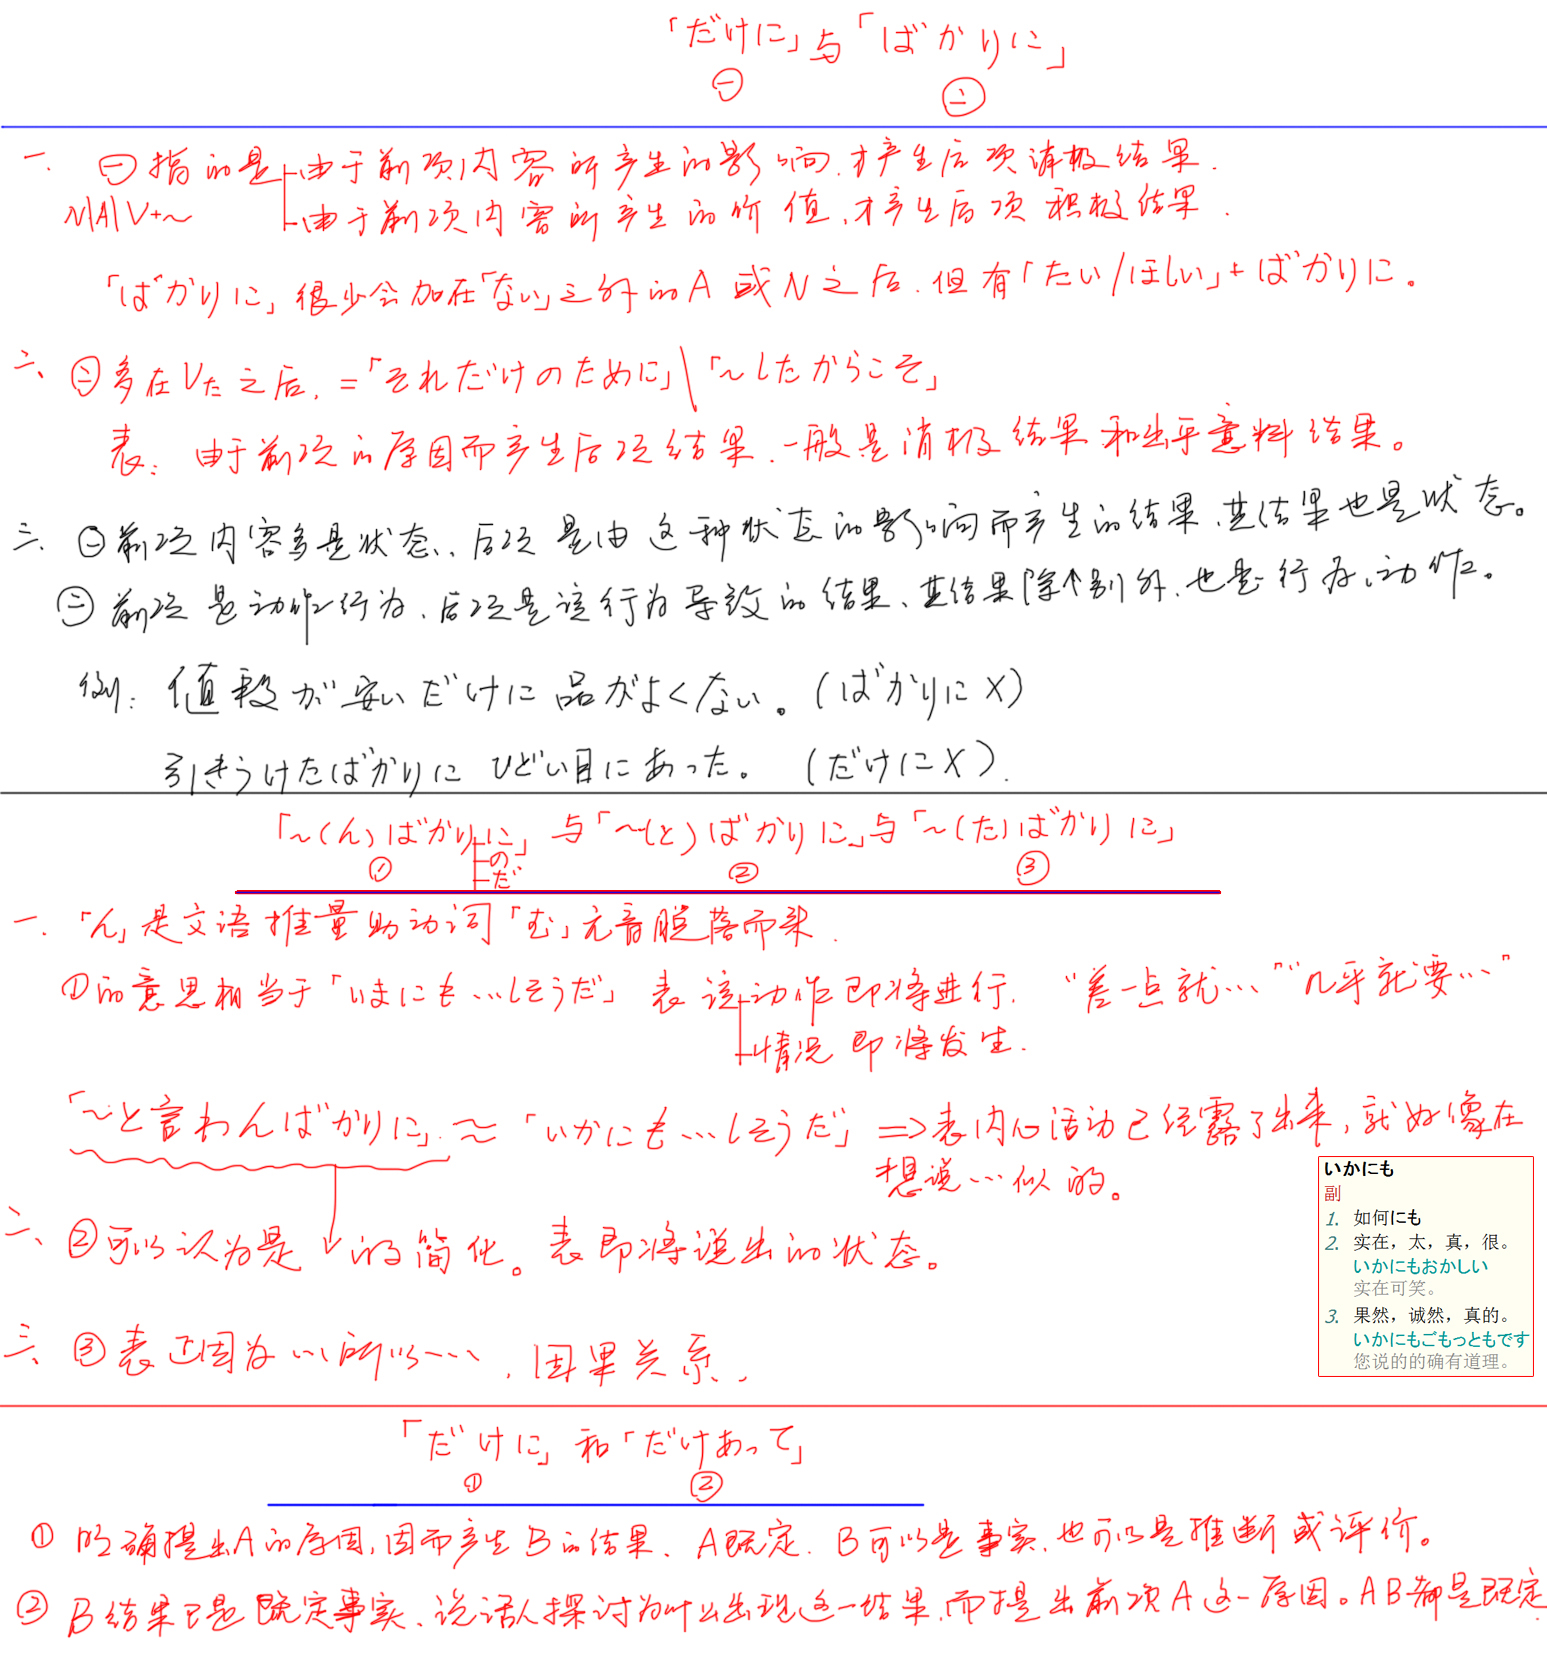 「だけに」与「ばかりに」
㊀ ㊁
一. ㊀指的是 由于前项内容所产生的影响,才产生后项消极结果.
N|A|V+~ 由于前项内容所产生的价值,才产生后项积极结果.
「ばかりに」很少会加在「ない」之外的A或N之后.但有「たい/ほしい」+ばかりに。
二、㊁多在Vた之后,=「それだけのために」\「~したからこそ」
表:由于前项的原因而产生后项结果,一般是消极结果和出乎意料结果。
三、㊀前项内容多是状态,后项是由这种状态的影响而产生的结果,其结果也是状态。
㊁前项是动作行为,后项是该行为导致的结果、其结果除个别外,也是行为、动作。
例:値段が安いだけに品がよくない。(ばかりに X)
引きうけたばかりにひどい目にあった。(だけに X).
「~(ん)ばかりに」与「~(と)ばかりに」与「~(た)ばかりに」
の
① ② ③
だ
一.「ん」是文语推量助动词「む」元音脱落而来.
①的意思相当于「いまにも…しそうだ」表该动作即将进行. “差一点就…”“几乎就要…”
情况即将发生.
「~と言わんばかりに」.≈「いかにも…しそうだ」=>表内心活动已经露了出来,就好像在
想说…似的。
いかにも
副
1. 如何にも
2. 实在,太,真,很。
いかにもおかしい
实在可笑。
3. 果然,诚然,真的。
いかにもごもっともです
您说的的确有道理。
二、②可以认为是↓的简化。表即将说出的状态。
三、③表正因为…所以…,因果关系.
「だけに」和「だけあって」
① ②
① 明确提出A的原因,因而产生B的结果、A既定.B可以是事实,也可以是推断或评价。
② B结果已是既定事实、说话人探讨为什么出现这一结果,而提出前项A这一原因。AB都是既定.